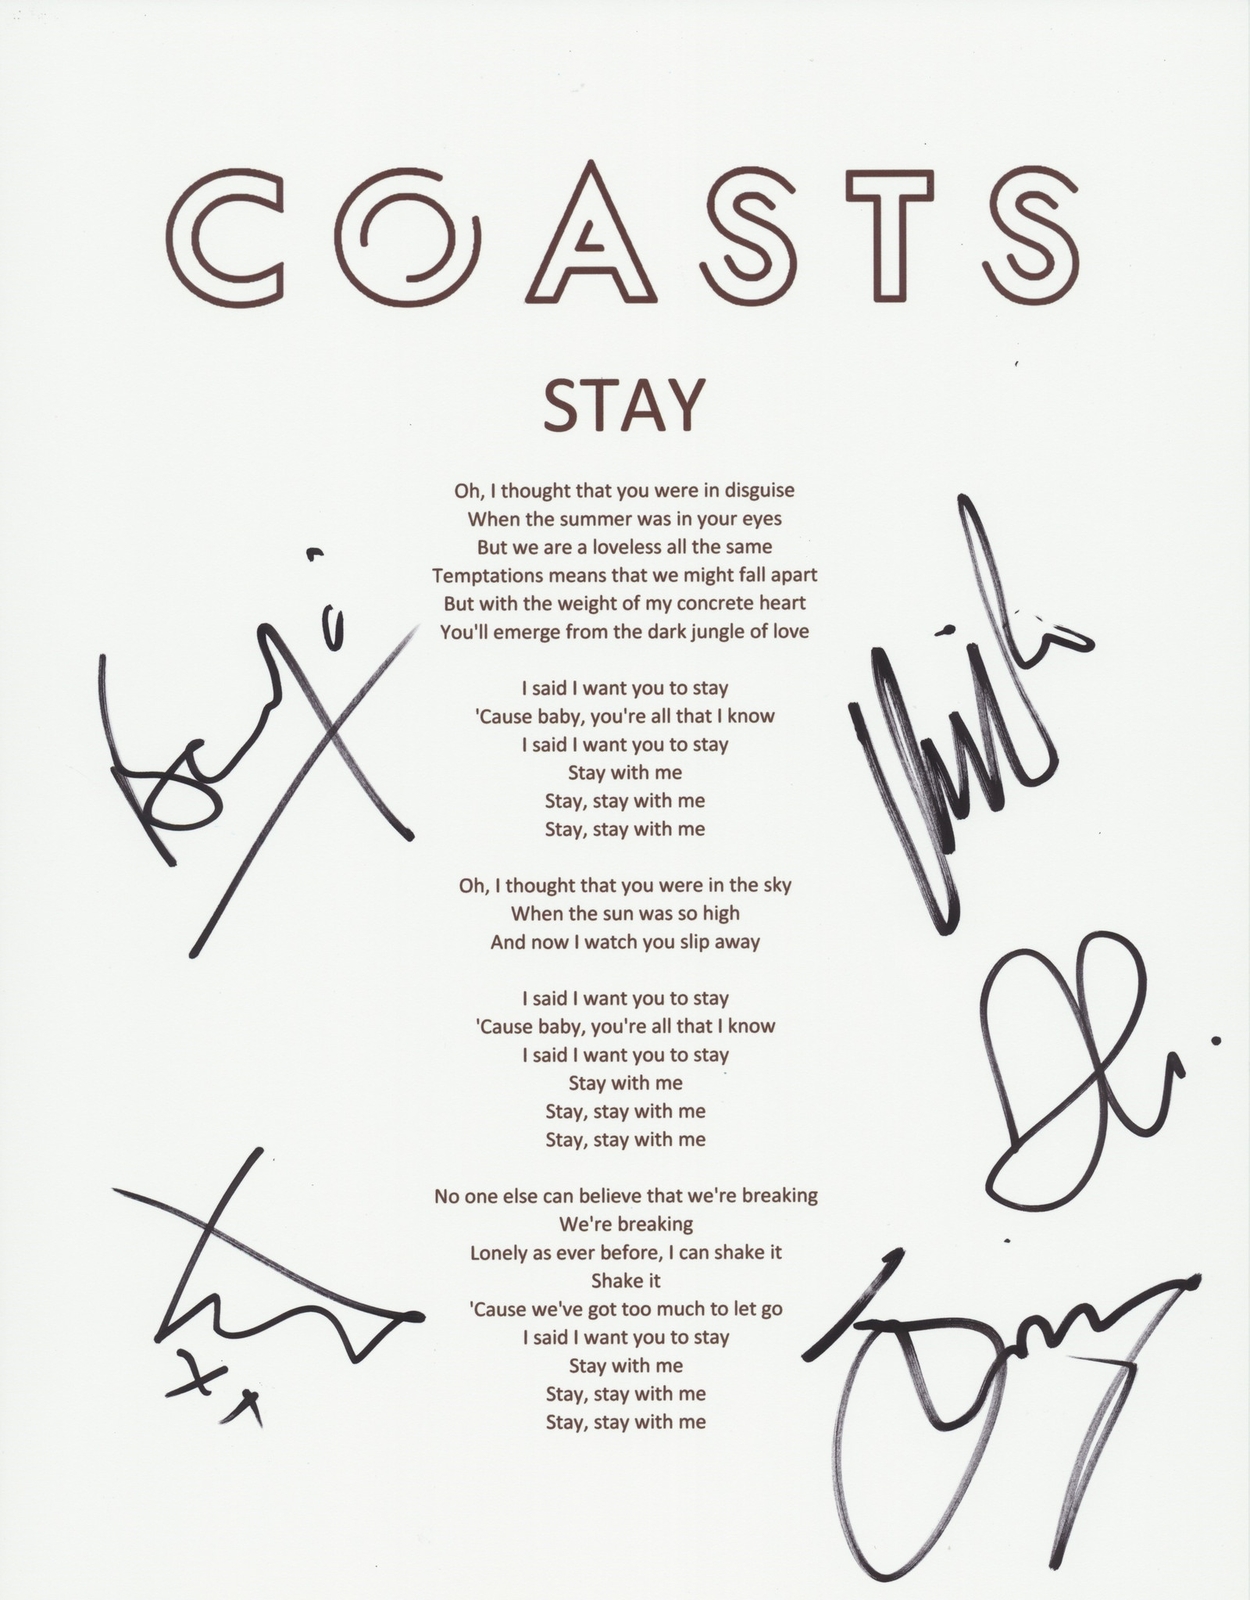 COASTS
STAY
Oh, I thought that you were in disguise
When the summer was in your eyes
But we are a loveless all the same
Temptations means that we might fall apart
But with the weight of my concrete heart
You'll emerge from the dark jungle of love
I said I want you to stay
'Cause baby, you're all that I know
I said I want you to stay
Stay with me
Stay, stay with me
Stay, stay with me
Oh, I thought that you were in the sky
When the sun was so high
And now I watch you slip away
I said I want you to stay
'Cause baby, you're all that I know
I said I want you to stay
Stay with me
Stay, stay with me
Stay, stay with me
No one else can believe that we're breaking
We're breaking
Lonely as ever before, I can shake it
Shake it
'Cause we've got too much to let go
I said I want you to stay
Stay with me
Stay, stay with me
Stay, stay with me